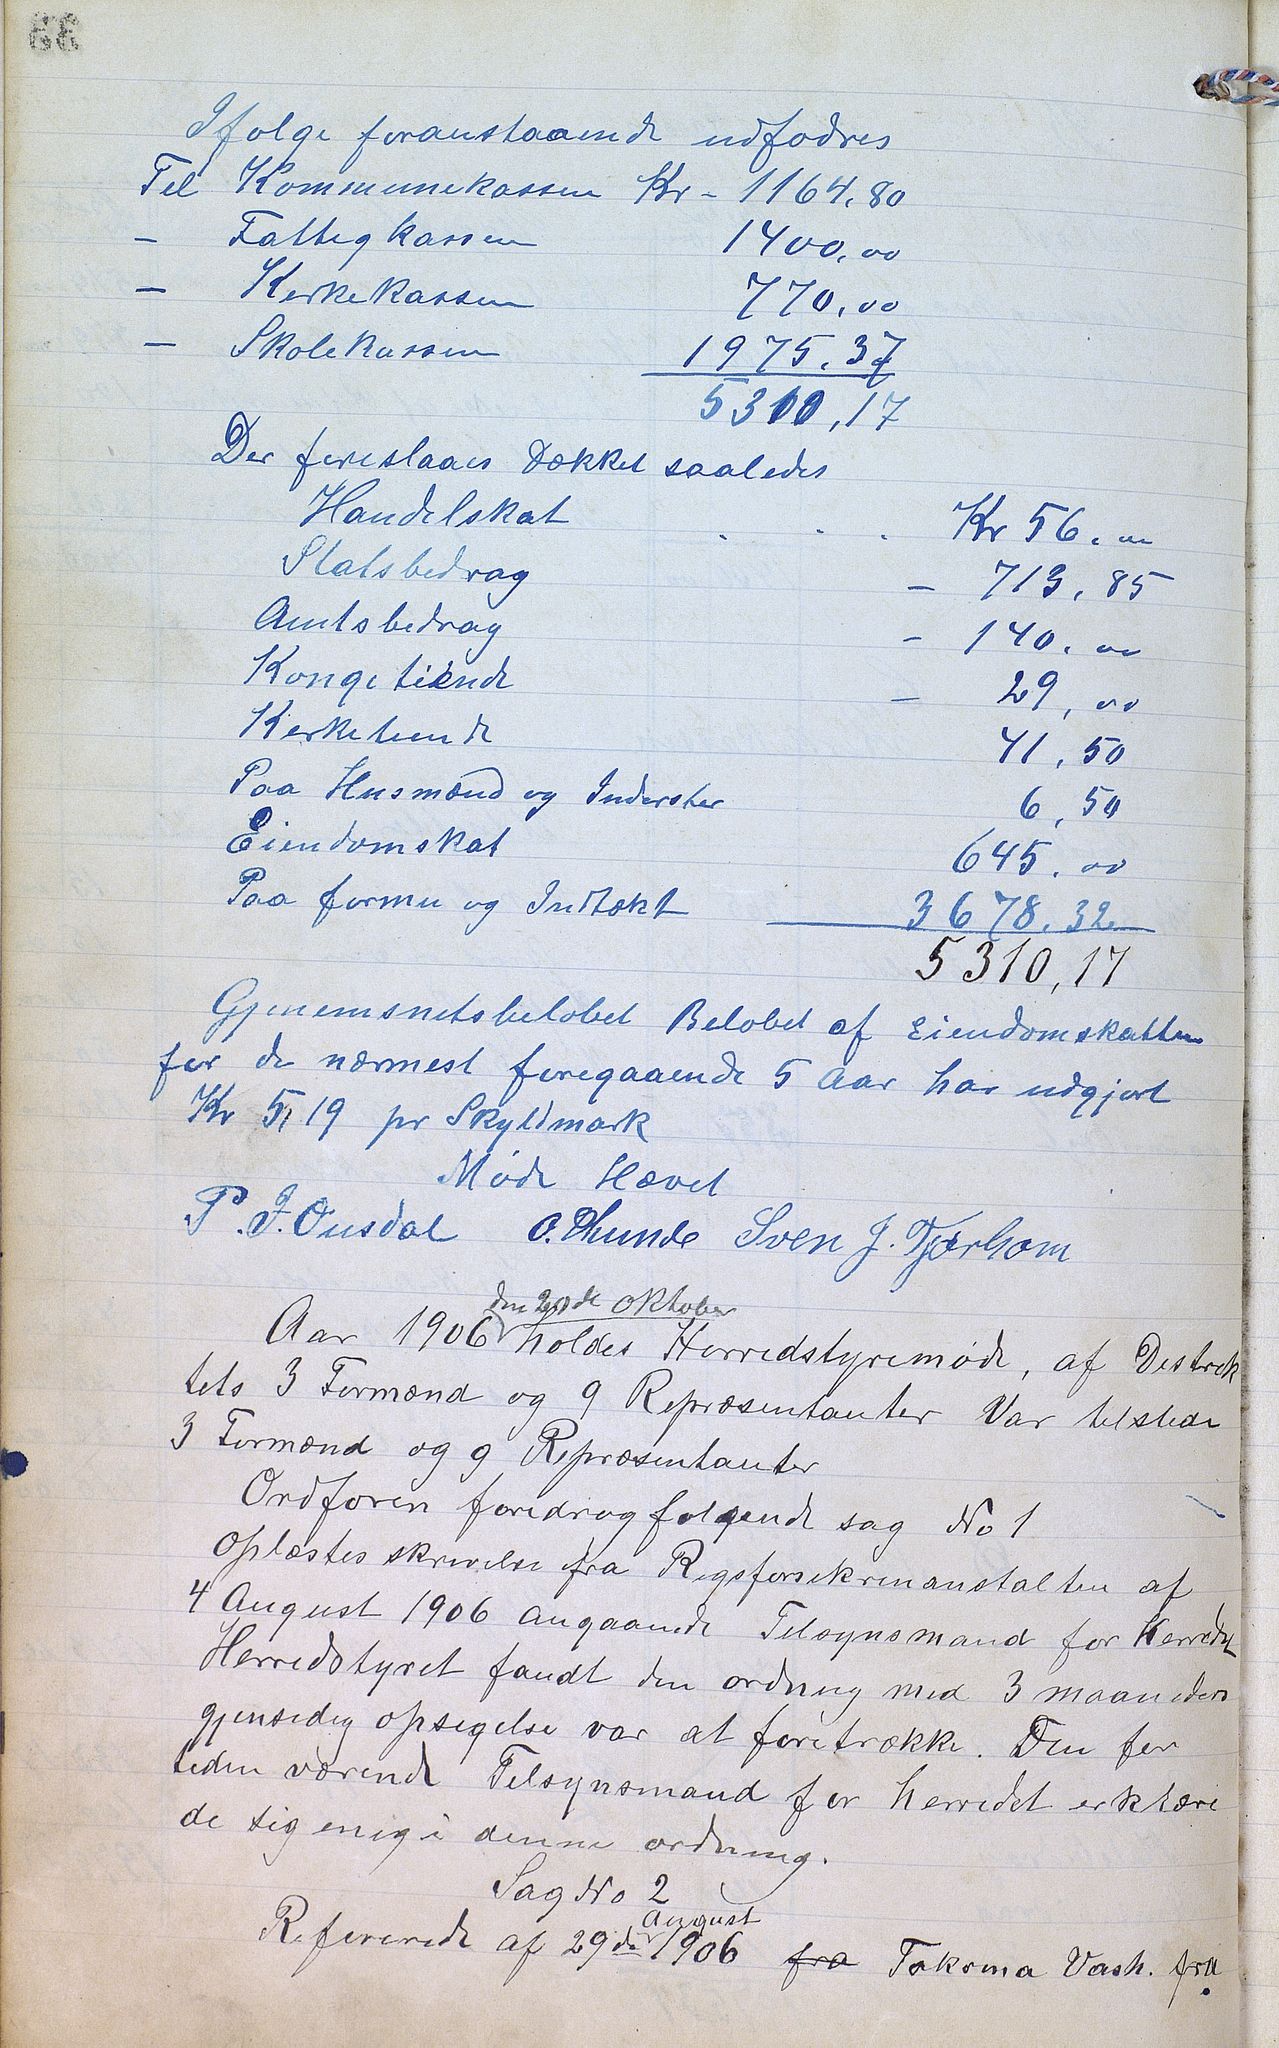 Ifølge foranstaaende udfodres
Til Kommunekassen Kr - 1164,80
- Fattigkassen 1400,00
- Kerkekassen 770,00
- Skolekassen 1975,37
5310,17
Der foreslaaes dækket saaledes
Handelskat . . . Kr 56,00
Statsbedrag - 713,85
Amtsbedrag - 140,00
Kongetiende - 29,00
Kerketiende 41,50
Paa Husmænd og Inderster 6,50
Eiendomskat 645,00
Paa formu og Indtækt 3678,32
5310,17
Gjenemsnitsbeløbet Beløbet af Eiendomskatten
for de nærmest foregaaende 5 Aar har udgjort
Kr 5,19 pr Skyldmark
Møde Hævet
P. J. Ousdal O. Thunde Sven J. Tjørhom
den 20de oktober
Aar 1906 holdes Herredstyremøde, af Destrek
tets 3 Formænd og 9 Repræsentanter Var telstede
3 Formænd og 9 Repræsentanter
Ordføren foredrog følgende sag No 1
Oplæstes skrivelse fra Rigsforsikrinanstalten af
4 August 1906 angaaende Telsynsmand for Herredet
Herredstyret fandt den ordning med 3 maaneders
gjensedig opsigelse var at foretrække. Den for
teden værende Telsynsmand for herredet erklære
de sig enig i denne ordning.
Sag No 2
August
Refererede af 29de 1906 fra Takoma Vash. fra